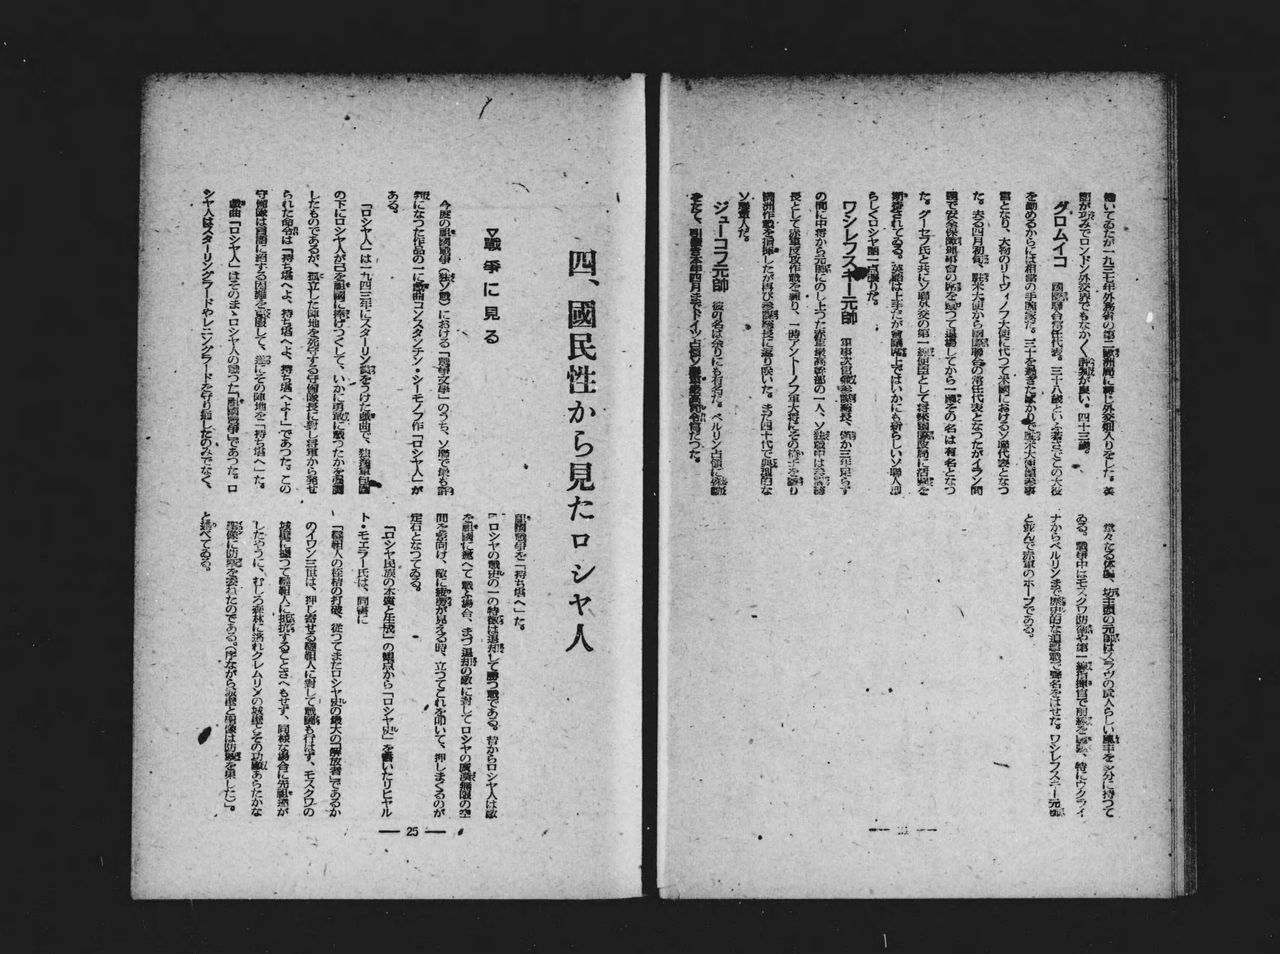 働いてゐたが一九三七年外務省の第二歐洲局に轉じ外交畑入りをした。英
語が巧みでロンドン外交界でもなか〱評判が良い。四十三歳。
グロムイコ　國際聯合常任代表。三十八歳といふ若さでこの大役
を勤めるからには相當の手腕家だ。三十を過ぎたばかりで駐米大使館參事
官となり、大物のリトヴィノフ大使に代つて米國におけるソ聯代表となつ
た。去る四月初旬、駐米大使から國際聯合の常任代表となつたがイラン問
題で安全保障理事會の席を蹴つて退場してから一躍その名は有名となつ
た。グーセフ氏と共にソ聯外交の第一線使臣として將來國際政局に活躍を
期待されてゐる。英語は上手だが會議席上ではいかにも新らしいソ聯人型
らしくロシヤ語一点張りだ。
ワシレフスキー元帥　軍事次官兼參謀總長、僅か三年足らず
の間に中將から元帥にのし上つた赤軍最高幹部の一人、ソ獨戰中は參謀總
長として赤軍反攻作戰を練り、一時アントーノフ軍大將にその椅子を譲り
滿洲作戰を指揮したが再び參謀總長に返り咲いた。まだ四十代で典型的な
ソ聯軍人だ。
ジューコフ元帥　彼の名は余りにも有名だ。ベルリン占領に偉勳
をたて、引續き本年四月までドイツ占領ソ聯軍最高司令官だつた。
堂々たる体軀、坊主頭の元帥はスラヴの武人らしい風丰を多分に持つて
ゐる。戰爭中はモスクワ防衛や第一線指揮官で前線を馳驅、特にウクライ
ナからベルリンまで歴史的な追撃戰で勇名をはせた。ワシレフスキー元帥
と並んで赤軍のホープである。
四、國民性から見たロシヤ人
▽戰爭に見る
今度の祖國戰爭（獨ソ戰）における「戰爭文學」のうち、ソ聯で最も評
判になつた作品の一に戯曲コンスタンチン・シーモノフ作「ロシヤ人」が
ある。
「ロシヤ人」は一九四三年にスターリン賞をうけた戯曲で、独逸軍包圍
の下にロシヤ人が己を祖國に捧げつくして、いかに勇敢に戰つたかを強調
したものであるが、孤立した陣地を死守する守備隊長に對し將軍から発せ
られた命令は「持ち堪へよ、持ち堪へよ、持ち堪へよ！」であつた。この
守備隊は言語に絶する困難を克服して、遂にその陣地を「持ち堪へ」た。
戯曲「ロシヤ人」はそのまゝロシヤ人の戰つた「祖國戰爭」であつた。ロ
シヤ人はスターリングラードやレニングラードを守り通したのみでなく、
祖國戰爭を「持ち堪へ」た。
「ロシヤの戰史の一の特徴は退却して勝つ戰である。昔からロシヤ人は敵
を祖國に邀へて戰ふ場合、まづ退却の敵に對してロシヤの廣漠無限の空
間を差向け、敵に疲勞が見える時、立つてこれを叩いて、押しまくるのが
定石となつてゐる。
「ロシヤ民族の本質と生成」の観点から「ロシヤ史」を書いたリヒヤル
ト・モエラー氏は、同書に
「韃靼人の桎梏の打破、從つてまたロシヤ史の最大の「解放者」であるか
のイワン三世は、押し寄せる韃靼人に對して戰鬪も行はず、モスクワの
城壁に據つて韃靼人に抵抗することさへもせず、同様な場合に先祖達が
したやうに、むしろ森林に逃れクレムリンの城壁とその功顯あらたかな
聖像に防禦を委ねたのである。（併ながら城壁と聖像は防禦を果した）。
と述べてゐる。
— 25 —